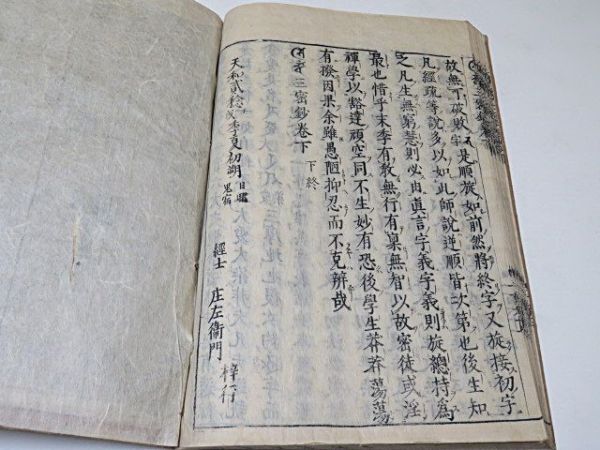 是順旋如前然將終字又旋接初字
故無下破敗字
凡經疏等說多以如此師說逆順皆次第也後生知
之凡生無窮慧則必由真言字義字義則旋總持為
最也惜乎末季有教無行有稟無智以故密徒或淫
禪學以豁達頑空同不生妙有恐後學生莽莽蕩蕩
有撥因果余雖愚陋抑忍而不克辨哉
三密鈔卷下
下終
天和貳 季夏初朔 日曜 鬼宿
經士 庄左衞門 梓行